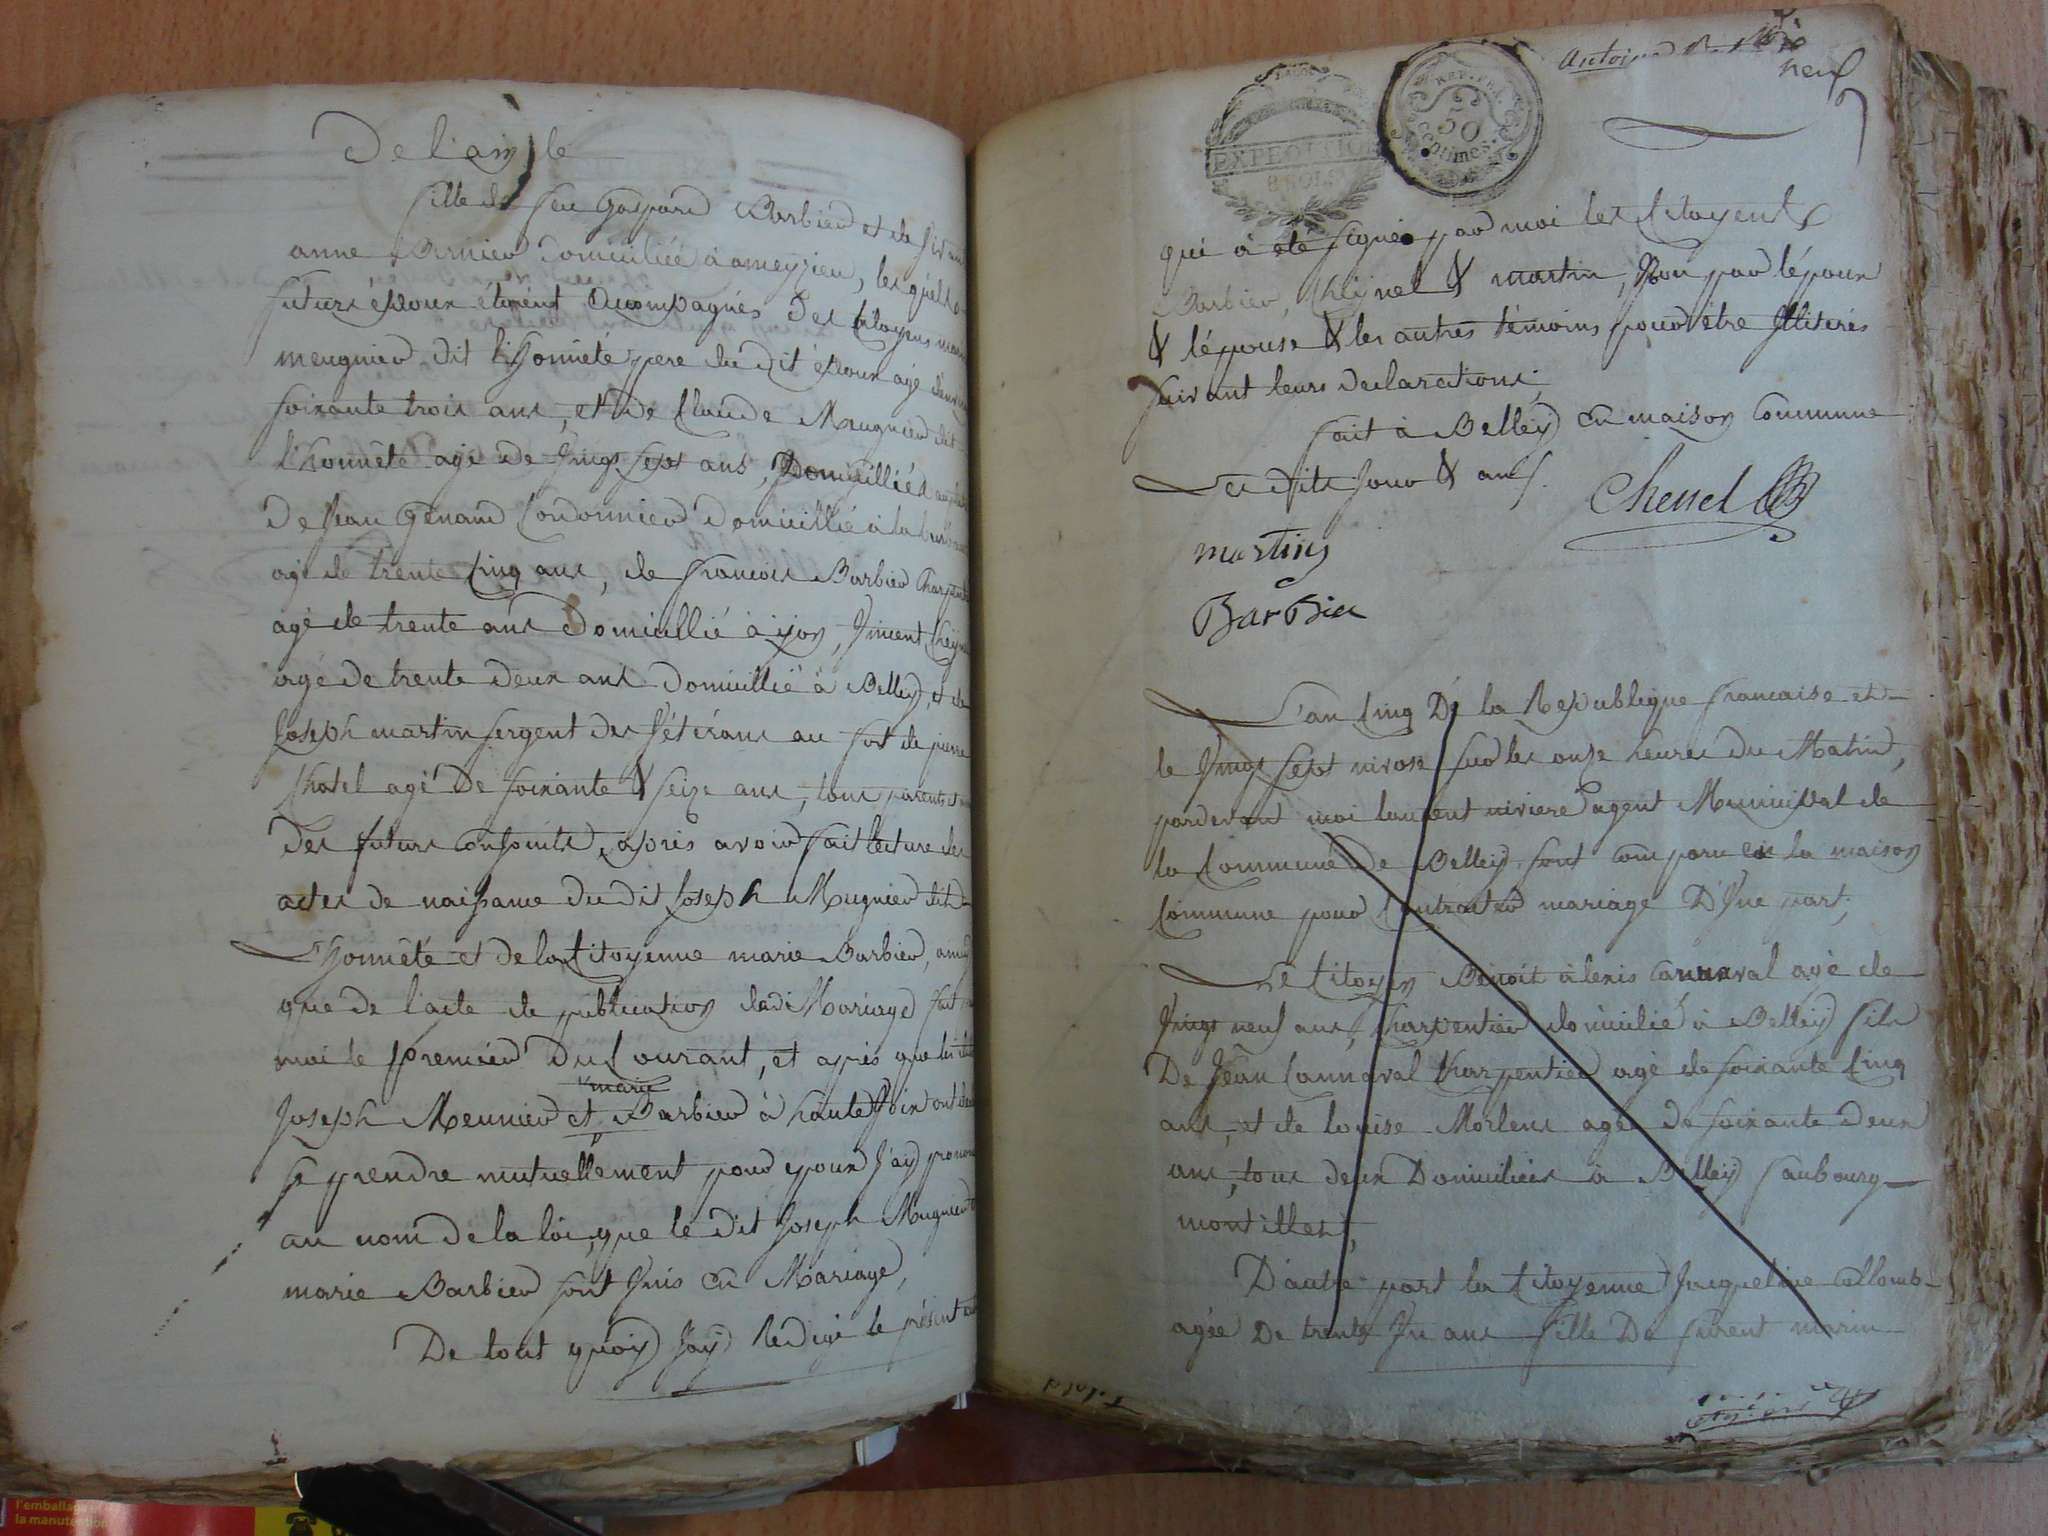 De l'ain
fille de feu Gaspard Barbier et de
anne Bernier domiciliée à ameyzieu, les quels
futurs époux étoient accompagnés Des Citoyens
meugnier dit l'honnêté pere du dit époux agé
soixante trois ans, et de Claude Meugnier dit
l'honnêté agé de Vingt sept ans, Domicilliés
De Jean Genand Cordonnier domicillié à la
agé de trente Cinq ans, de francois Barbier
agé de trente ans domicillié à yon, Vincent
agé de trente deux ans domicillié à Belley, et de
Joseph martin sergent des Vétérans au fort de pierre
Chatel agé de soixante & seize ans, tous parents et
des futurs conjoints, après avoir fait lecture des
actes de naissance du dit Joseph Mugnier dit
l'honnêté et de la Citoyenne marie Barbier,
que de l'acte de publication dudi Mariage fait
moi le premier Du Courant, et après que les
marie
Joseph Meunier et Barbier à haute Voix ont
se prendre mutuellement pour epoux J'ay
au nom de la loi, que le dit Joseph Mugnier
marie Barbier sont Unis en Mariage,
De tout quoy J'ay Rédigé le présent
Antoine
neuf
REP. FRA.
50
centimes
EXPEDITION
8 SOLS
qui à été signé par moi les Citoyens
Barbier, Cheynel & martin, Non par lépoux
& lépouse & les autres témoins pour être Illiterés
suivant leurs declarations;
fait à Belley en maison Commune
Les dits Jour & an.
Chenel
martin
Barbier
L'an Cinq De la Republique francaise et
le Vingt sept nivose sur les onze heures du Matin,
pardevant moi laurent riviere agent Municipal de
la Commune De Belley sont comparu en la maison
Commune pour Contracter mariage D'Une part;
Le Citoyen Benoit alexis Cannaval agé de
Vingt neuf ans, Charpentier domicilié à Belley fils
De Jean Cannaval Charpentier agé de soixante Cinq
ans, et de louise Morlens agée De soixante Deux
ans, tous deux Domiciliés à Belley faubourg
montilliet;
D'autre part la Citoyenne Jacqueline Collomb
agée De trente Un ans fille De furent marin
l'emballage
la manutention